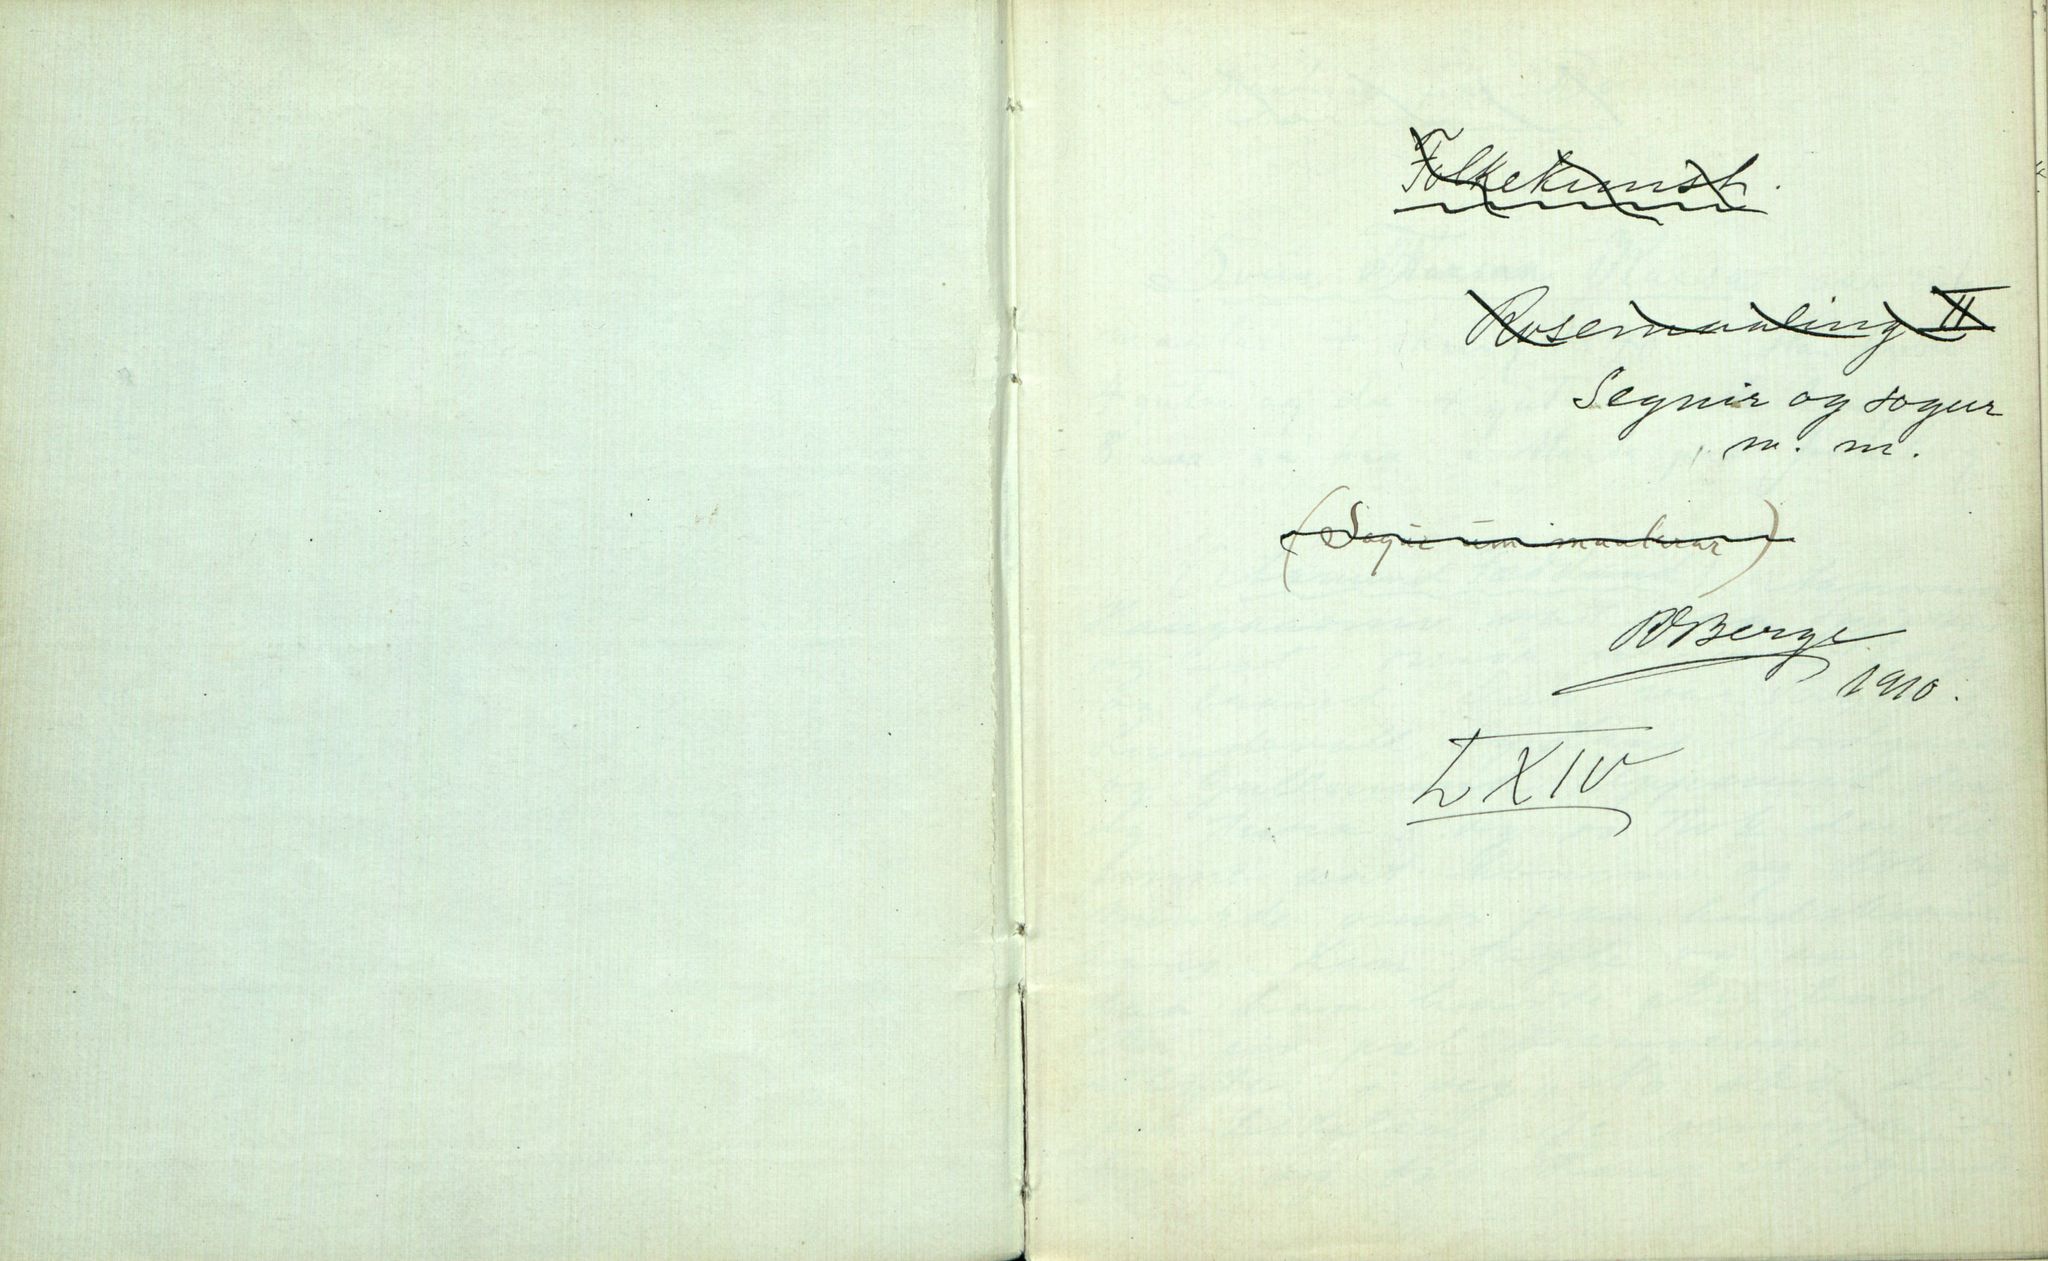 Folkekunst.
Rosemaaling II
Segnir og sogur
m. m.
(Sogur um maalarar)
RBerge
1910.
LXIV